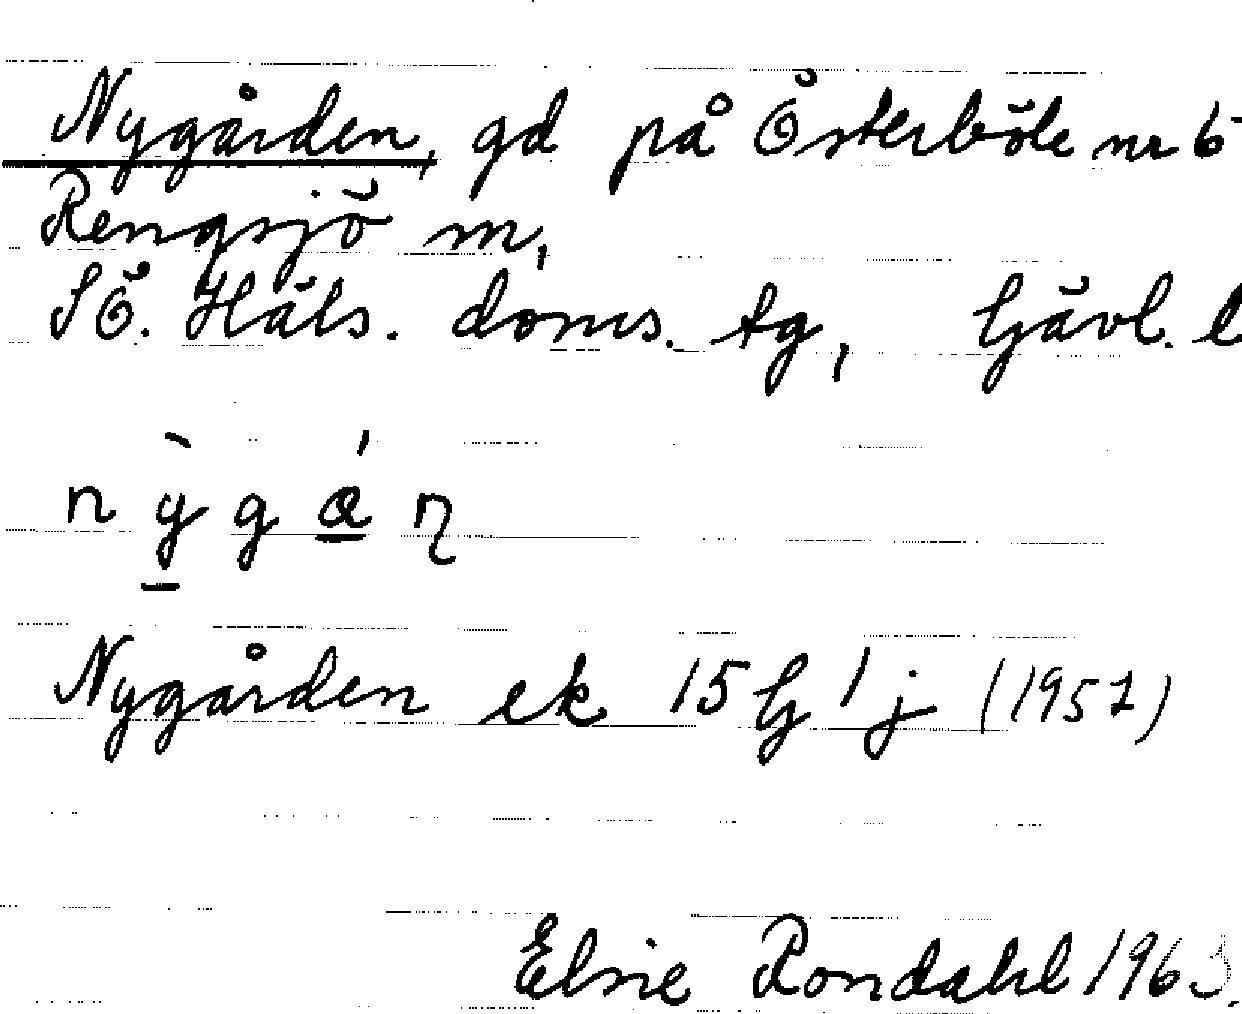 Nygården, gd på Österböle nr 6
Rengsjö sn,
SÖ. Häls. doms. tg, Gävl. l
n ỳ g ǽ ɳ
Nygården ek 15 G 1 j (1957)
Elsie Rondahl 1963.